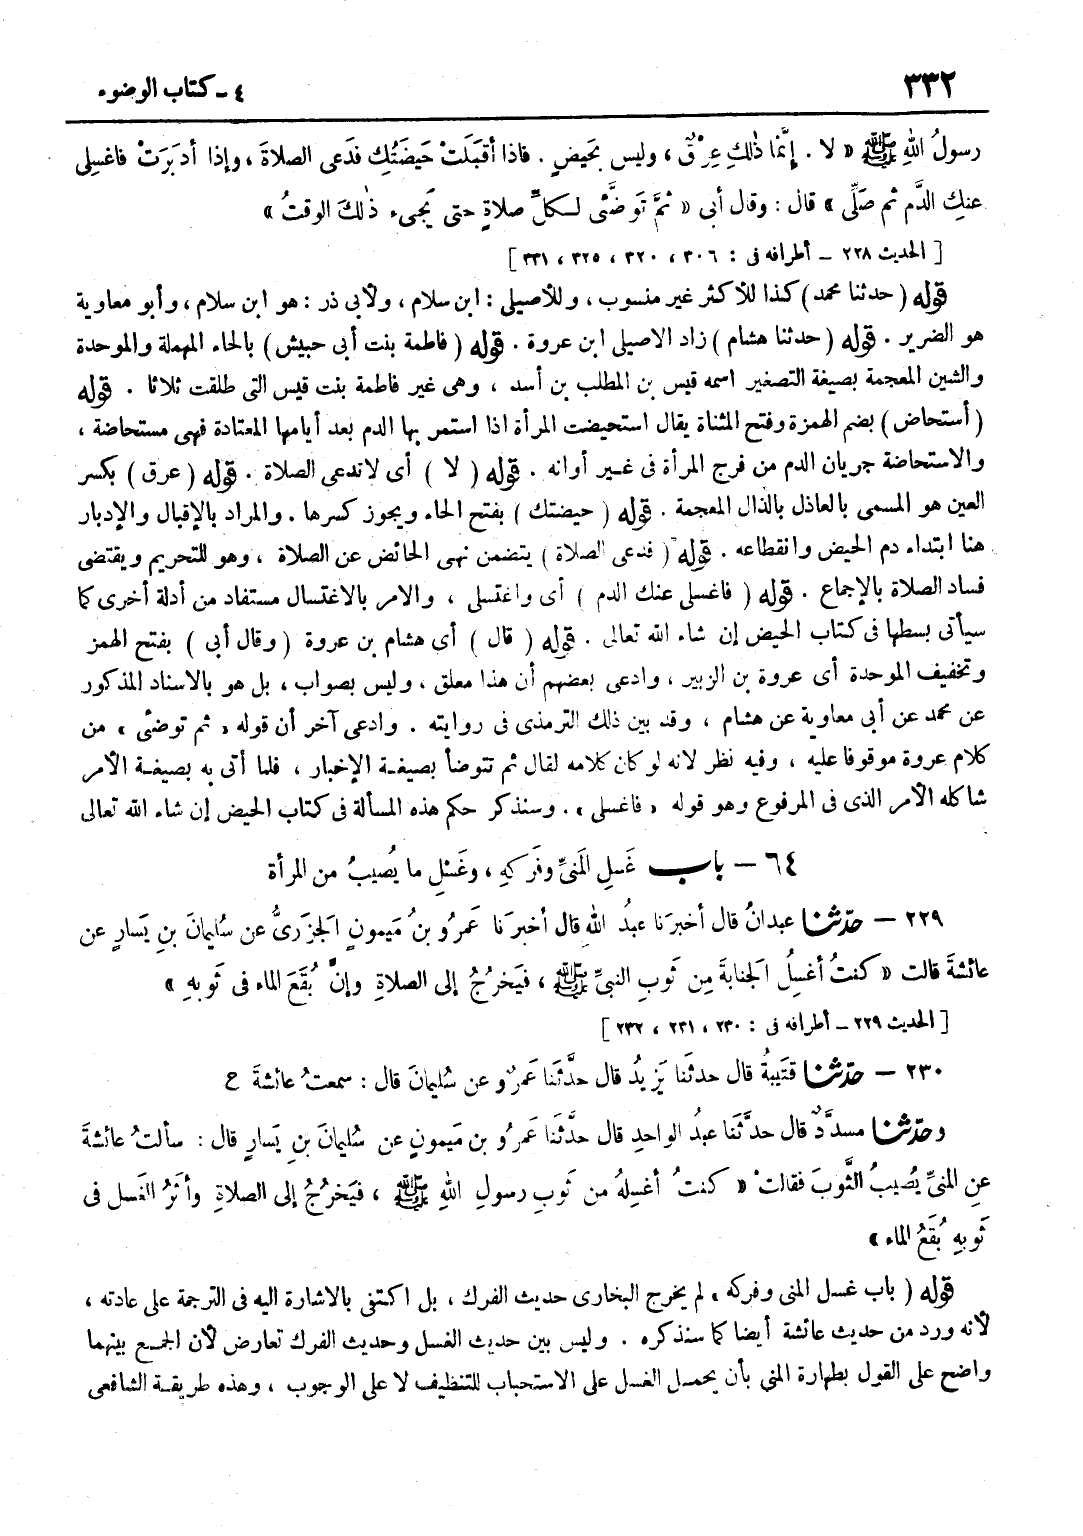 ٣٣٢
٤ - كتاب الوضوء
رسولُ اللهِ ﷺ « لا . إنَّما ذٰلكِ عِرْقٌ ، وليس بحَيضٍ . فاذا أقبَلَتْ حَيضَتُكِ فدَعى الصلاةَ ، وإذا أدبَرَتْ فاغسِلى
عنكِ الدَّم ثم صَلِّى » قال : وقال أبى « ثمَّ تَوضَّئى لكلِّ صلاةٍ حتى يَجىء ذٰلكَ الوقتُ »
[ الحديث ٢٢٨ - أطرافه فى : ٣٠٦ ، ٣٢٠ ، ٣٢٥ ، ٣٣١ ]
قوله ( حدثنا محمد ) كذا للأكثر غير منسوب ، وللأصيلى : ابن سلام ، ولأبى ذر : هو ابن سلام ، وأبو معاوية
هو الضرير . قوله ( حدثنا هشام ) زاد الاصيلى ابن عروة . قوله ( فاطمة بنت أبى حبيش ) بالحاء المهملة والموحدة
والشين المعجمة بصيغة التصغير اسمه قيس بن المطلب بن أسد ، وهى غير فاطمة بنت قيس التى طلقت ثلاثا . قوله
( أستحاض ) بضم الهمزة وفتح المثناة يقال استحيضت المرأة اذا استمر بها الدم بعد أيامها المعتادة فهى مستحاضة ،
والاستحاضة جريان الدم من فرج المرأة فى غير أوانه . قوله ( لا ) أى لا تدعى الصلاة . قوله ( عرق ) بكسر
العين هو المسمى بالعاذل بالذال المعجمة . قوله ( حيضتك ) بفتح الحاء ويجوز كسرها . والمراد بالإقبال والإدبار
هنا ابتداء دم الحيض وانقطاعه . قوله ( فدعى الصلاة ) يتضمن نهى الحائض عن الصلاة ، وهو للتحريم ويقتضى
فساد الصلاة بالإجماع . قوله ( فاغسلى عنك الدم ) أى واغتسلى ، والامر بالاغتسال مستفاد من أدلة أخرى كما
سيأتى بسطها فى كتاب الحيض إن شاء الله تعالى . قوله ( قال ) أى هشام بن عروة ( وقال أبى ) بفتح الهمز
وتخفيف الموحدة أى عروة بن الزبير ، وادعى بعضهم أن هذا معلق ، وليس بصواب ، بل هو بالاسناد المذكور
عن محمد عن أبى معاوية عن هشام ، وقد بين ذلك الترمذى فى روايته . وادعى آخر أن قوله « ثم توضئى » من
كلام عروة موقوفا عليه ، وفيه نظر لانه لو كان كلامه لقال ثم تتوضأ بصيغة الإخبار ، فلما أتى به بصيغة الأمر
شاكله الأمر الذى فى المرفوع وهو قوله « فاغسلى » . وسنذكر حكم هذه المسألة فى كتاب الحيض إن شاء الله تعالى
٦٤ - باب غَسلِ المَنىِّ وفَركهِ ، وغَسْلِ ما يُصيبُ من المرأة
٢٢٩ - حدّثنا عبدانُ قال أخبرَنا عبدُ الله قال أخبرَنا عَمرُو بنُ مَيمونٍ الجَزَرىُّ عن سُليمانَ بنِ يَسارٍ عن
عائشةَ قالت « كنتُ أغسِلُ الجَنابةَ مِن ثَوبِ النبىِّ ﷺ ، فيَخرُجُ إلى الصلاةِ وإنَّ بُقَعَ الماء فى ثَوبهِ »
[ الحديث ٢٢٩ - أطرافه فى : ٢٣٠ ، ٢٣١ ، ٢٣٢ ]
٢٣٠ - حدّثنا قتَيبةُ قال حدثَنا يَزيدُ قال حدَّثَنا عَمرٌو عن سُليمانَ قال : سمعتُ عائشةَ ح
وحدّثنا مسدَّدٌ قال حدَّثَنا عبدُ الواحدِ قال حدَّثَنا عَمرُو بن مَيمونٍ عن سُليمانَ بنِ يَسارٍ قال : سألتُ عائشةَ
عنِ المنىِّ يُصيبُ الثَّوبَ فقالتْ « كنتُ أغسِلهُ من ثَوبِ رسولِ اللهِ ﷺ ، فيَخرُجُ إلى الصلاةِ وأثَرُ الغَسل فى
ثَوبهِ بُقَعُ الماء »
قوله ( باب غسل المنى وفركه » لم يخرج البخارى حديث الفرك ، بل اكتفى بالاشارة اليه فى الترجمة على عادته ،
لأنه ورد من حديث عائشة أيضا كما سنذكره . وليس بين حديث الغسل وحديث الفرك تعارض لأن الجمع بينهما
واضح على القول بطهارة المنى بأن يحمل الغسل على الاستحباب للتنظيف لا على الوجوب ، وهذه طريقة الشافعى